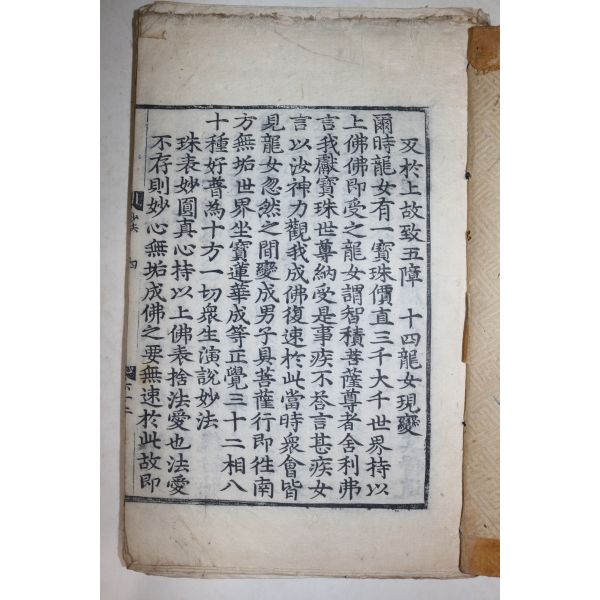 又於上故致五障　十四龍女現變
爾時龍女有一寶珠價直三千大千世界持以
上佛佛即受之龍女謂智積菩薩尊者舍利弗
言我獻寶珠世尊納受是事疾不答言甚疾女
言以汝神力觀我成佛復速於此當時衆會皆
見龍女忽然之間變成男子具菩薩行即徃南
方無垢世界坐寶蓮華成等正覺三十二相八
十種好普為十方一切衆生演說妙法
珠表妙圓真心持以上佛表捨法愛也法愛
不存則妙心無垢成佛之要無速於此故即
四